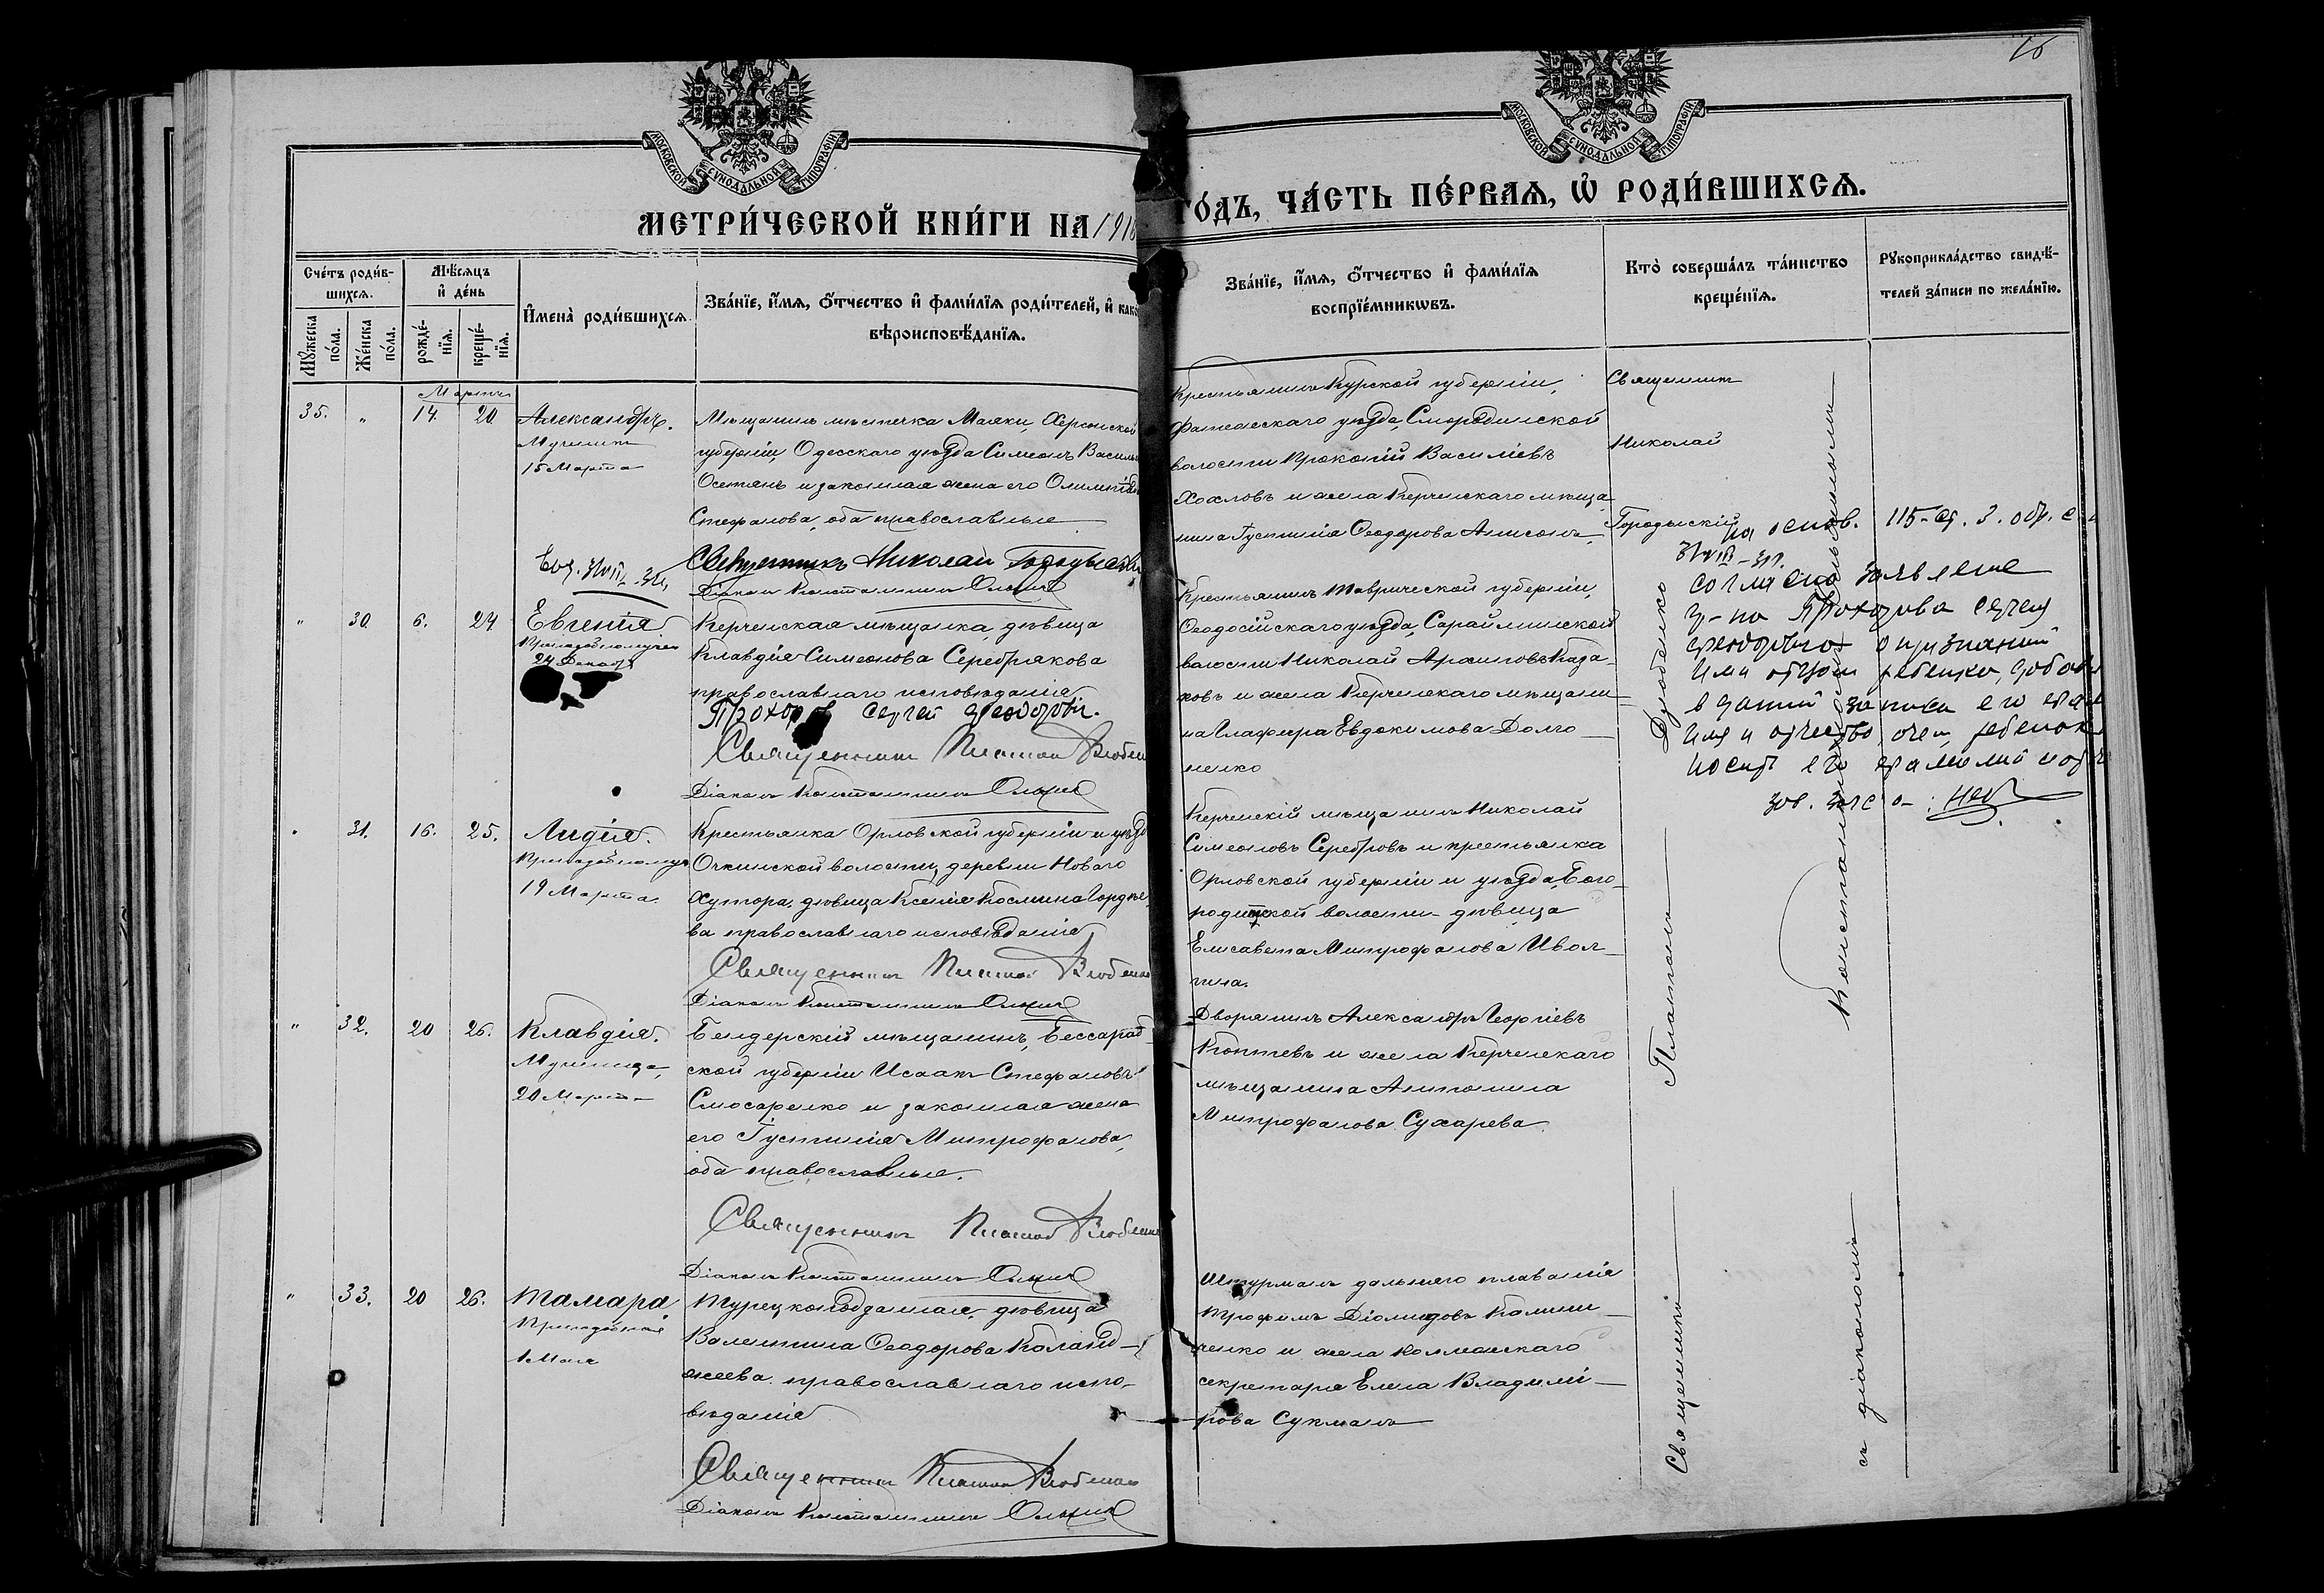 16
МОСКОВСКОЙ СѴНОДАЛЬНОЙ ТИПОГРАФІИ
МОСКОВСКОЙ СѴНОДАЛЬНОЙ ТИПОГРАФІИ
МЕТРИ́ЧЕСКОЙ КНИ́ГИ НА 191
ГО́ДЪ, ЧА́СТЬ ПЕ́РВАЯ, Ѡ РОДИ́ВШИХСЯ.
Сче́тъ роди́в-
шихся.
Мꙋ́жеска по́ла.
Же́нска по́ла.
Мѣ́сяцъ
и҆ де́нь
рожде́-
нїя.
креще́-
нїя.
И҆мена̀ роди́вшихся.
Зва́нїе, и҆́мя, ѻ҆́тчество и҆ фами́лїя роди́телей, и҆ како
вѣроисповѣ́данїя.
Зва́нїе, и҆́мя, ѻ҆́тчество и҆ фами́лїя
воспрїе́мникѡвъ.
Кто̀ соверша́лъ та́инство
креще́нїя.
Рꙋкоприкла́дство свидѣ́-
телей за́писи по жела́нїю.
Мартъ
35. " 14. 20. Александръ.
Мученикъ
15 Марта
Мѣщанинъ мѣстечка Маяки, Херсонской
губерніи, Одесскаго уѣзда Симеонъ Василь
и законная жена его Олимпіада
Стефанова, оба православные
Священникъ Николай
Діаконъ Константинъ
Крестьянинъ Курской губерніи,
Фатежскаго уѣзда, Смородинской
волости Прокопій Василіевъ
Хохловъ и жена Керченскаго мѣща-
нина Густинія Ѳеодорова
Священникъ
Николай
Городыскій
" 30. 6. 24 Евгенія.
24 Декабря
Керченская мѣщанка, дѣвица
Клавдія Симеонова Серебрякова
православнаго исповѣданія
Прохоров Сергей Феодорович.
Священникъ Платонъ
Діаконъ Константинъ
Крестьянинъ Таврической губерніи,
Ѳеодосійскаго уѣзда, Сарайминской
волости Николай Архиповъ Каза-
ковъ и жена Керченскаго мѣщани-
на Глафира Евдокимова Долго-
ненко
на основ. 115 ст. З.
согласно заявление
гр-на Прохорова Сергея
Феодоровича о признании
им отцом ребенка, добавл
в записи его
имя и отчество, отец ребенка
носит его фамилию
зав. загс
" 31. 16. 25. Лидія.
19 Марта
Крестьянка Орловской губерніи и уѣзда
волости, деревни Новаго
Хутора, дѣвица Ксенія Космина Гордѣе-
ва православнаго исповѣданія
Священникъ Платонъ
Діаконъ Константинъ
Керченскій мѣщанинъ Николай
Симеоновъ Серебровъ и крестьянка
Орловской губерніи и уѣзда, Бого-
родицкой волости - дѣвица
Елисавета Митрофанова Ивол-
гина.
" 32. 20 26. Клавдія.
Мученица,
20 Марта
Бендерскій мѣщанинъ, Бессараб-
ской губерніи Исаакъ Стефановъ
Слюсаренко и законная жена
его Густинія Митрофанова,
оба православные.
Священникъ Платонъ
Діаконъ Константинъ
Дворянинъ Александръ Георгіевъ
Коптевъ и жена Керченскаго
мѣщанина Антонина
Митрофанова Сухарева.
" 33. 20 26. Тамара
Преподобная
1 Мая
Турецкоподданная, дѣвица
Валентина Ѳеодорова Коланд-
жеева православнаго испо-
вѣданія
Священникъ Платонъ
Діаконъ Константинъ
Штурманъ дальняго плаванія
Трофимъ Діомидовъ Калини-
ченко и жена коллежскаго
секретаря Елена Владимі-
рова Сукманъ
Священникъ Платонъ
съ діакономъ Константиномъ